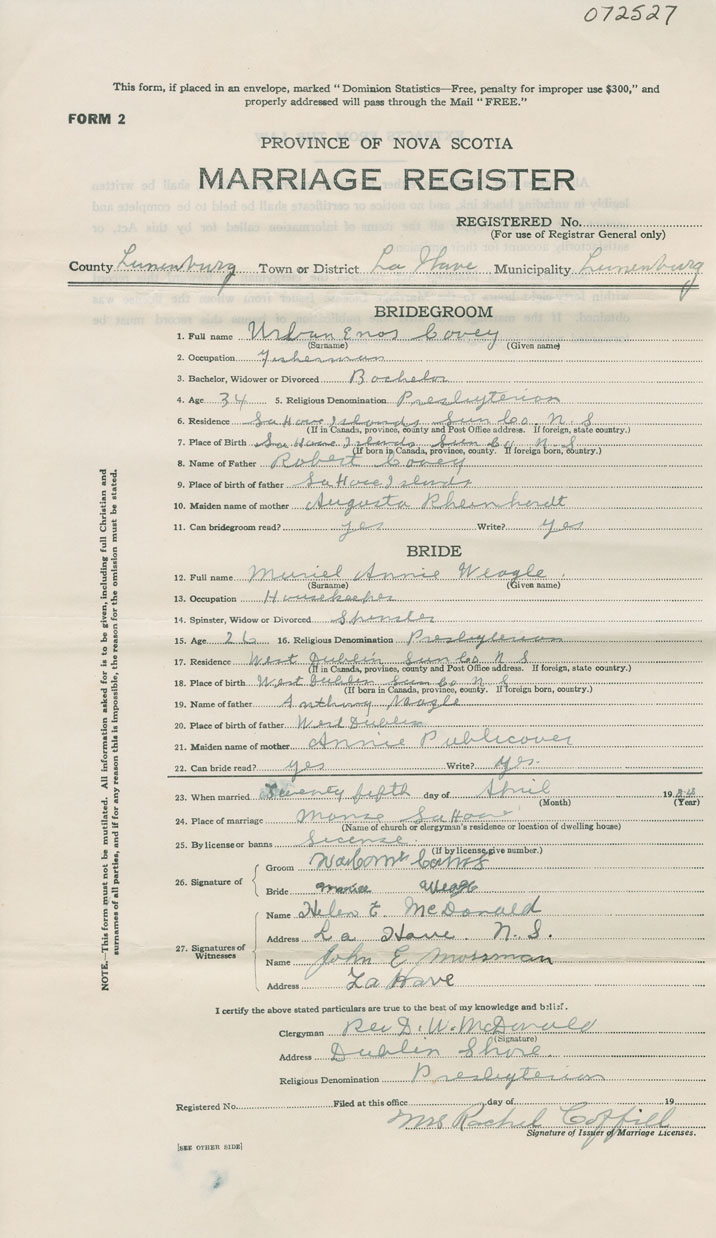 072527
This form, if placed in an envelope, marked "Dominion Statistics—Free, penalty for improper use $300," and
properly addressed will pass through the Mail "FREE."
FORM 2
PROVINCE OF NOVA SCOTIA
MARRIAGE REGISTER
REGISTERED No.
(For use of Registrar General only)
County Lunenburg Town or District La Have Municipality Lunenburg
BRIDEGROOM
1. Full name Urban Enos Covey
(Surname) (Given name)
2. Occupation Fisherman
3. Bachelor, Widower or Divorced Bachelor
4. Age 34 5. Religious Denomination Presbyterian
6. Residence La Have Islands Lun Co. N. S
(If in Canada, province, county and Post Office address. If foreign, state country.)
7. Place of Birth La Have Islands Lun Co N. S
(If born in Canada, province, county. If foreign born, country.)
8. Name of Father Robert Covey
9. Place of birth of father La Have Islands
10. Maiden name of mother Augusta Rheinhardt
11. Can bridegroom read? yes Write? yes
BRIDE
12. Full name Muriel Annie Weagle
(Surname) (Given name)
13. Occupation Housekeeper
14. Spinster, Widow or Divorced Spinster
15. Age 26 16. Religious Denomination Presbyterian
17. Residence West Dublin Lun Co N S
(If in Canada, province, county and Post Office address. If foreign, state country.)
18. Place of birth West Dublin Lun Co N. S
(If born in Canada, province, county. If foreign born, country.)
19. Name of father Anthony Weagle
20. Place of birth of father West Dublin
21. Maiden name of mother Annie Publicover
22. Can bride read? yes Write? yes.
23. When married Twenty fifth day of April 19
(Month) (Year)
24. Place of marriage Manse La Have
(Name of church or clergyman's residence or location of dwelling house)
25. By license or banns License
(If by license, give number.)
26. Signature of
Groom
Bride Weagle
27. Signatures of Witnesses
Name Helen E. McDonald
Address La Have N. S.
Name John E Mossman
Address La Have
I certify the above stated particulars are true to the best of my knowledge and belief.
Clergyman Rev D. W. McDonald
(Signature)
Address Dublin Shore.
Religious Denomination Presbyterian
Registered No. Filed at this office day of 19
Mrs Rachel Coffill
Signature of Issuer of Marriage Licenses.
[SEE OTHER SIDE]
NOTE.—This form must not be mutilated. All information asked for is to be given, including full Christian and
surnames of all parties, and if for any reason this is impossible, the reason for the omission must be stated.